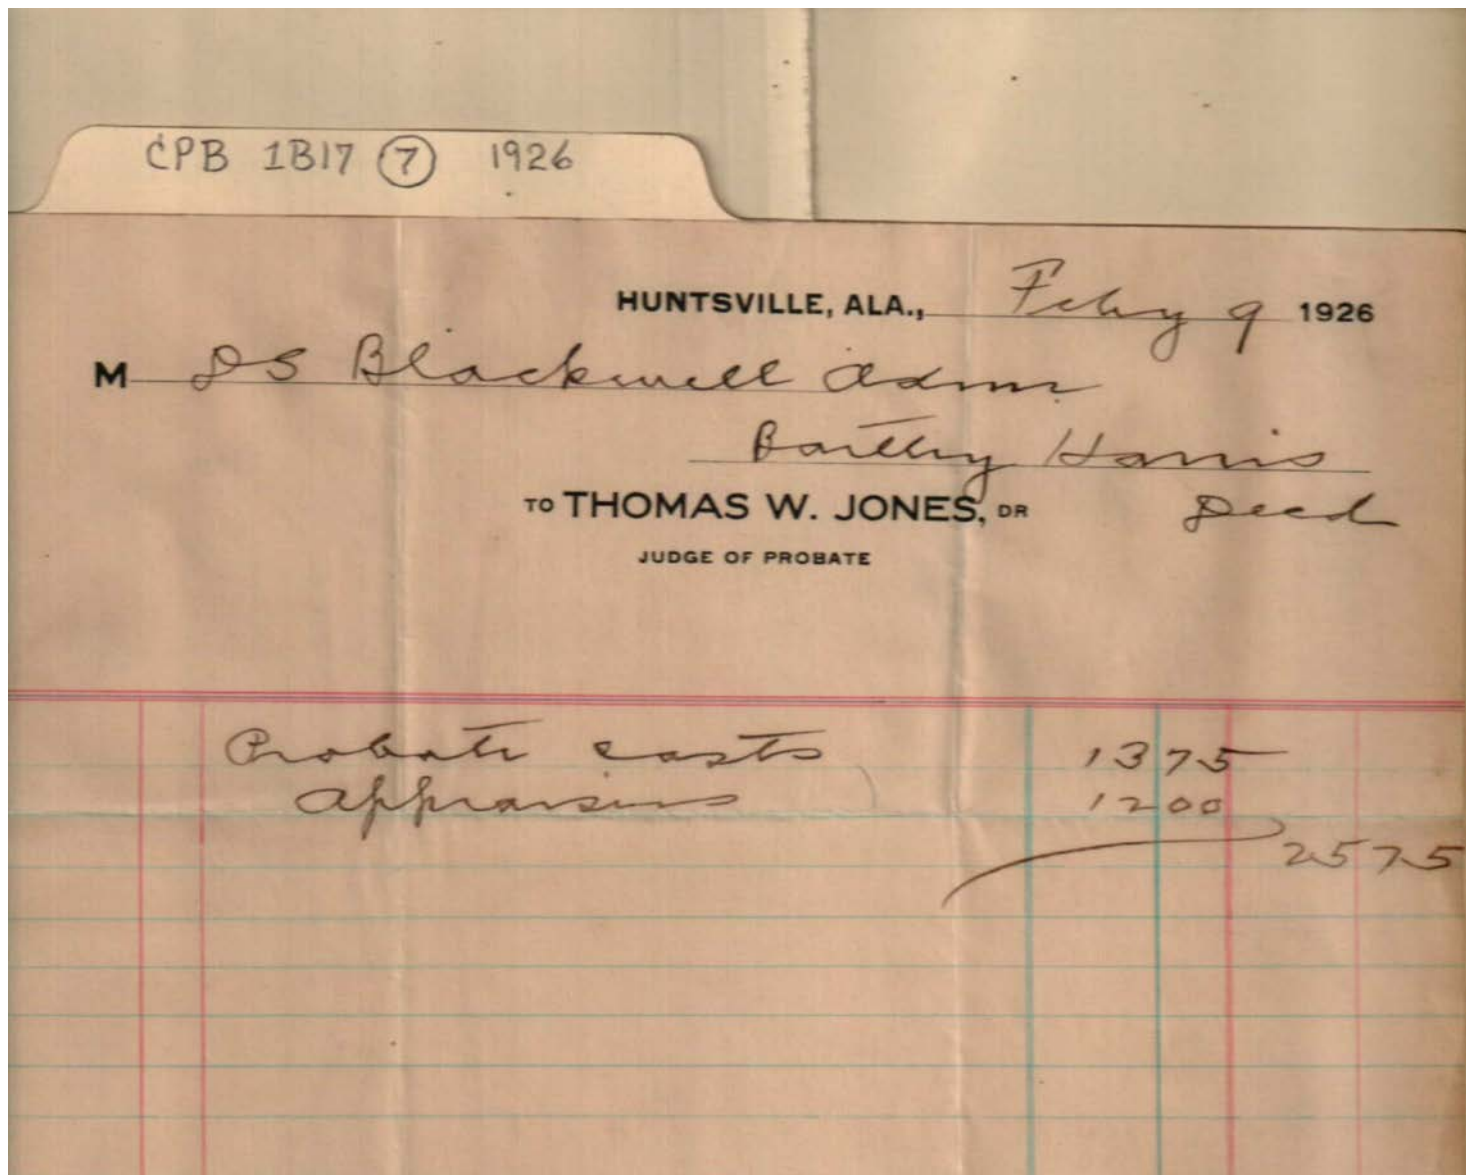 CPB 1B17 7 1926
HUNTSVILLE, ALA., Feby 9 1926
M DS Blackwell Admr
Bartley Harris
TO THOMAS W. JONES, DR Decd
JUDGE OF PROBATE
Probate costs 1375
Appraisers 1200
2575